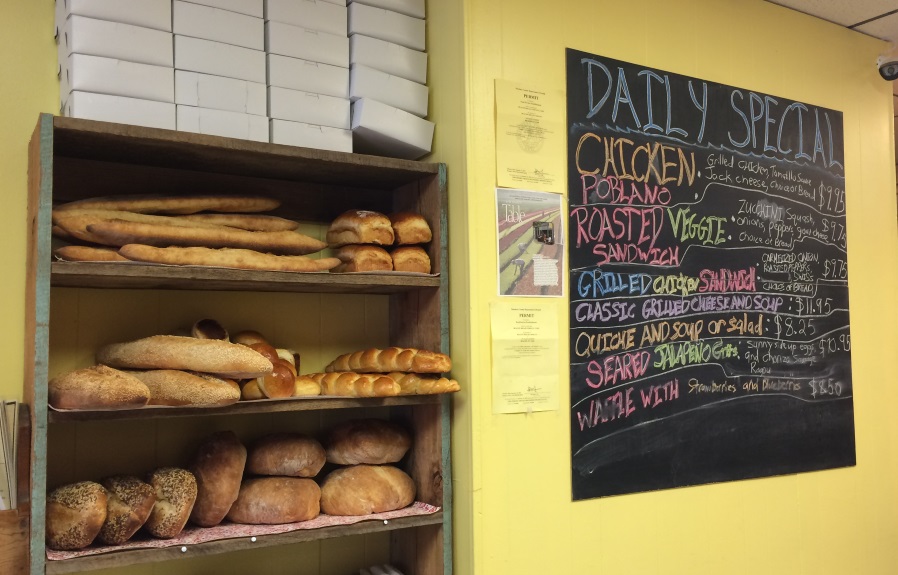 DAILY SPECIAL
CHICKEN
POBLANO
Grilled Chicken, Tomatillo Sauce
Jack cheese, choice of Bread $9.95
ROASTED VEGGIE
SANDWICH
ZUCCHINI Squash
onions, peppers, goat cheese
choice of Bread $9.75
GRILLED CHICKEN SANDWICH
CARMELIZED ONION
ROASTED PEPPERS
SWISS
CHOICE OF BREAD $9.75
CLASSIC GRILLED CHEESE AND SOUP : $11.95
QUICHE AND SOUP or Salad : $8.25
SEARED JALAPEÑO Grits
Sunny side up eggs
and chorizo Sausage $10.95
WAFFLE WITH Strawberries and Blueberries $8.50
PERMIT
Table
PERMIT